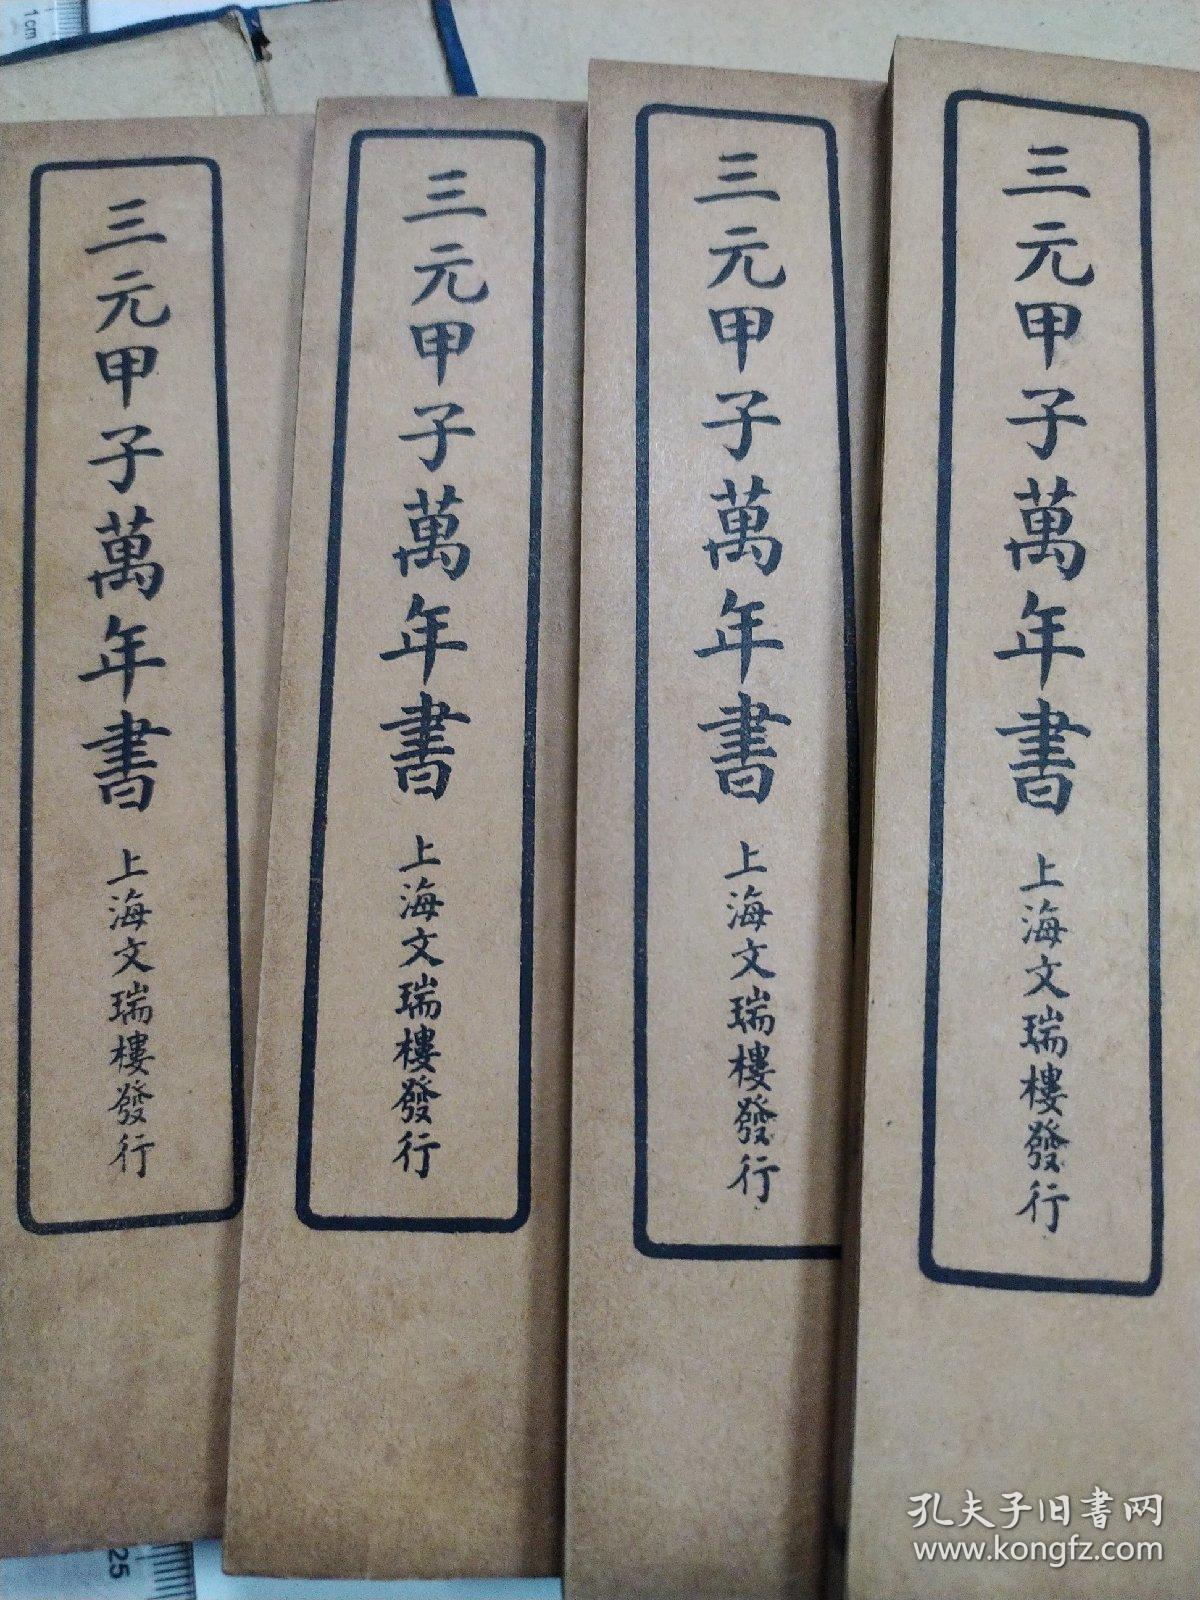 三元甲子萬年書 上海文瑞樓發行
三元甲子萬年書 上海文瑞樓發行
三元甲子萬年書 上海文瑞樓發行
三元甲子萬年書 上海文瑞樓發行
1cm
25
孔夫子旧書网
www.kongfz.com